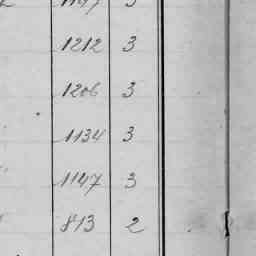 1212 3
1206 3
1134 3
1147 3
813 2